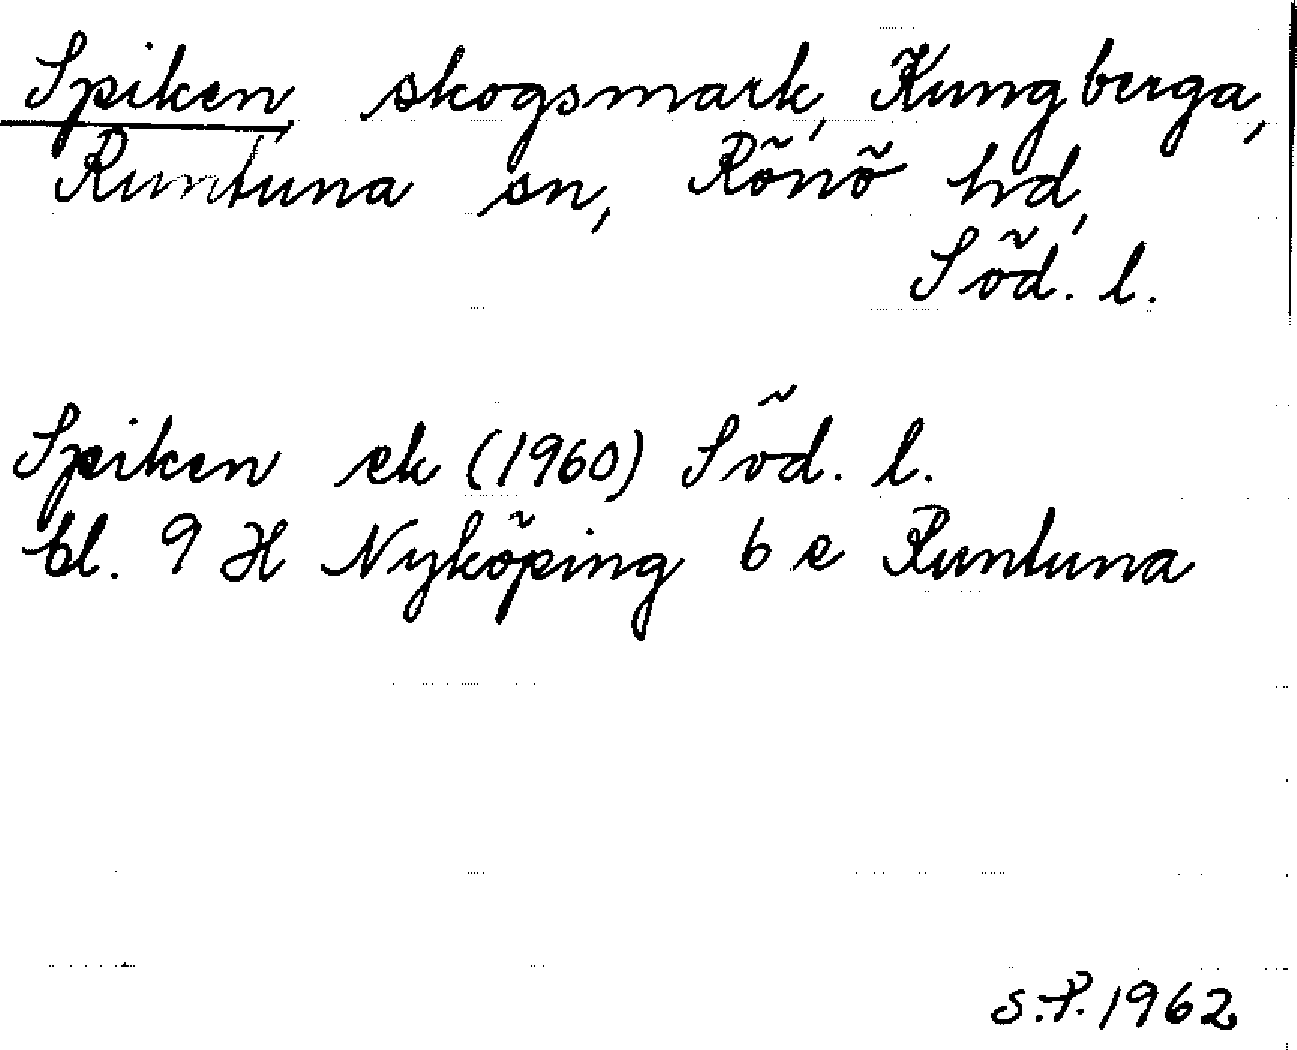 Spiken skogsmark, Kungberga,
Runtuna sn, Rönö hd,
Söd. l.
Spiken ek (1960) Söd. l.
bl. 9 H Nyköping 6 e Runtuna
S.P. 1962